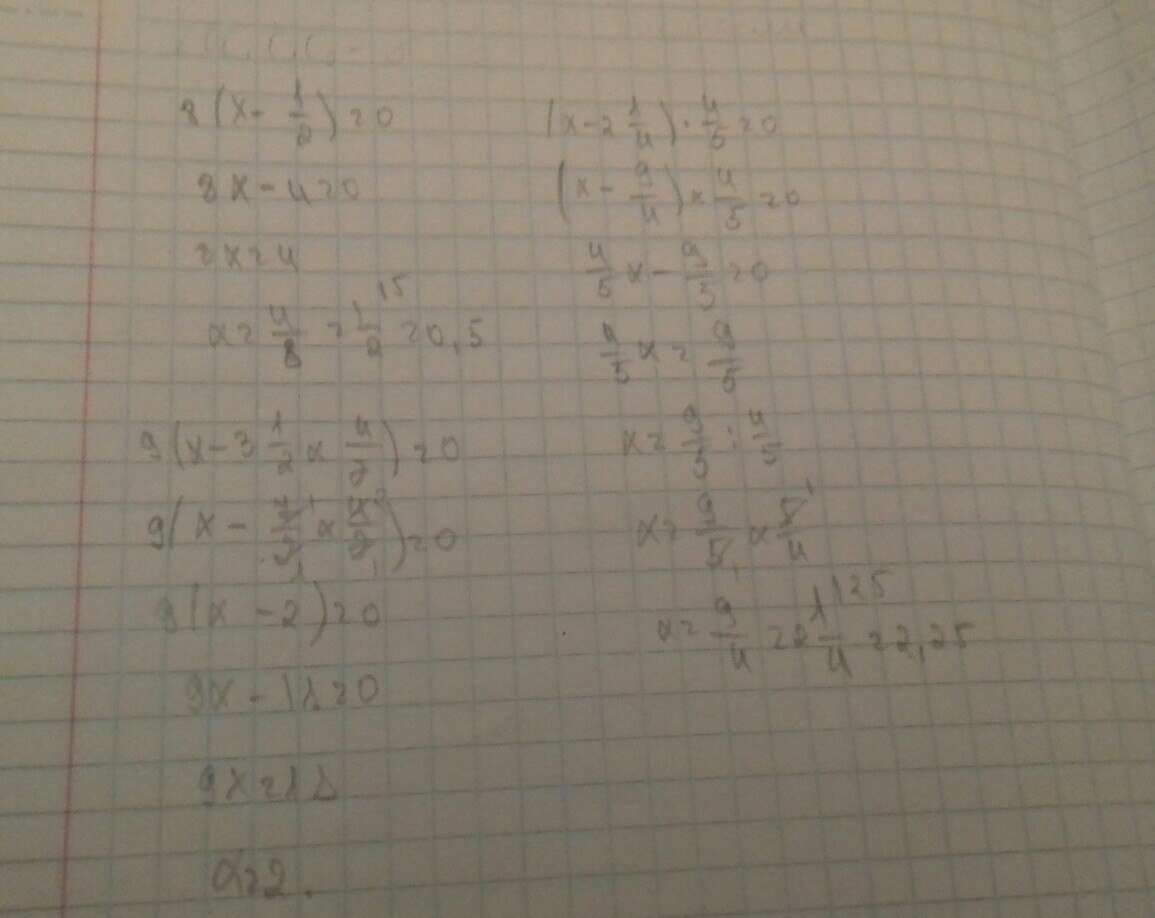 8(x - 1/2) = 0
8x - 4 = 0
8x = 4
x = 4/8 = 1/2 ^15 = 0,5
9(x - 3 1/2 × 4/7) = 0
9(x - 7/2 × 4/7) = 0
9(x - 2) = 0
9x - 18 = 0
9x = 18
x = 2.
(x - 2 1/4) · 4/5 = 0
(x - 9/4) × 4/5 = 0
4/5 x - 9/5 = 0
4/5 x = 9/5
x = 9/5 : 4/5
x = 9/5 × 5/4
x = 9/4 = 2 1/4 ^125 = 2,25